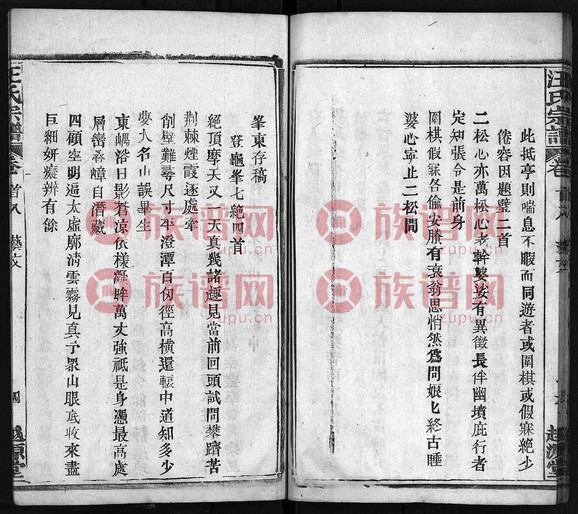 汪氏宗譜
卷首八
藝文
越源堂
此抵亭則喘息不暇而同遊者或圍棋或假寐絕少
倦容因題壁二首
二松心亦萬松心老幹婆娑有異徵長伴幽墳庇行者
定知張令是前身
圍棋假寐各偷安勝有衰翁思悄然為問娘七終古睡
婆心寧止二松間
峯東存稿
登龜峯七絕四首
絕頂摩天又一天真幾諸趣見當前回頭試問攀躋苦
荆棘煙霞逐處牽
削壁難尋尺寸平澄潭百仞徑高橫還轅中道知多少
要入名山誤畢生
東嵎浴日影蒼凉依樣凝眸萬丈強祇是身憑最高處
層巒叠嶂自潛藏
四顧空明逼太虛廓清雲霧見真予衆山眼底收來盡
巨細妍癡辨有餘
汪氏宗譜
卷首八
藝文
四
越源堂
族谱网
zupu.cn
族谱网
zupu.cn
族谱网
zupu.cn
族谱网
zupu.cn